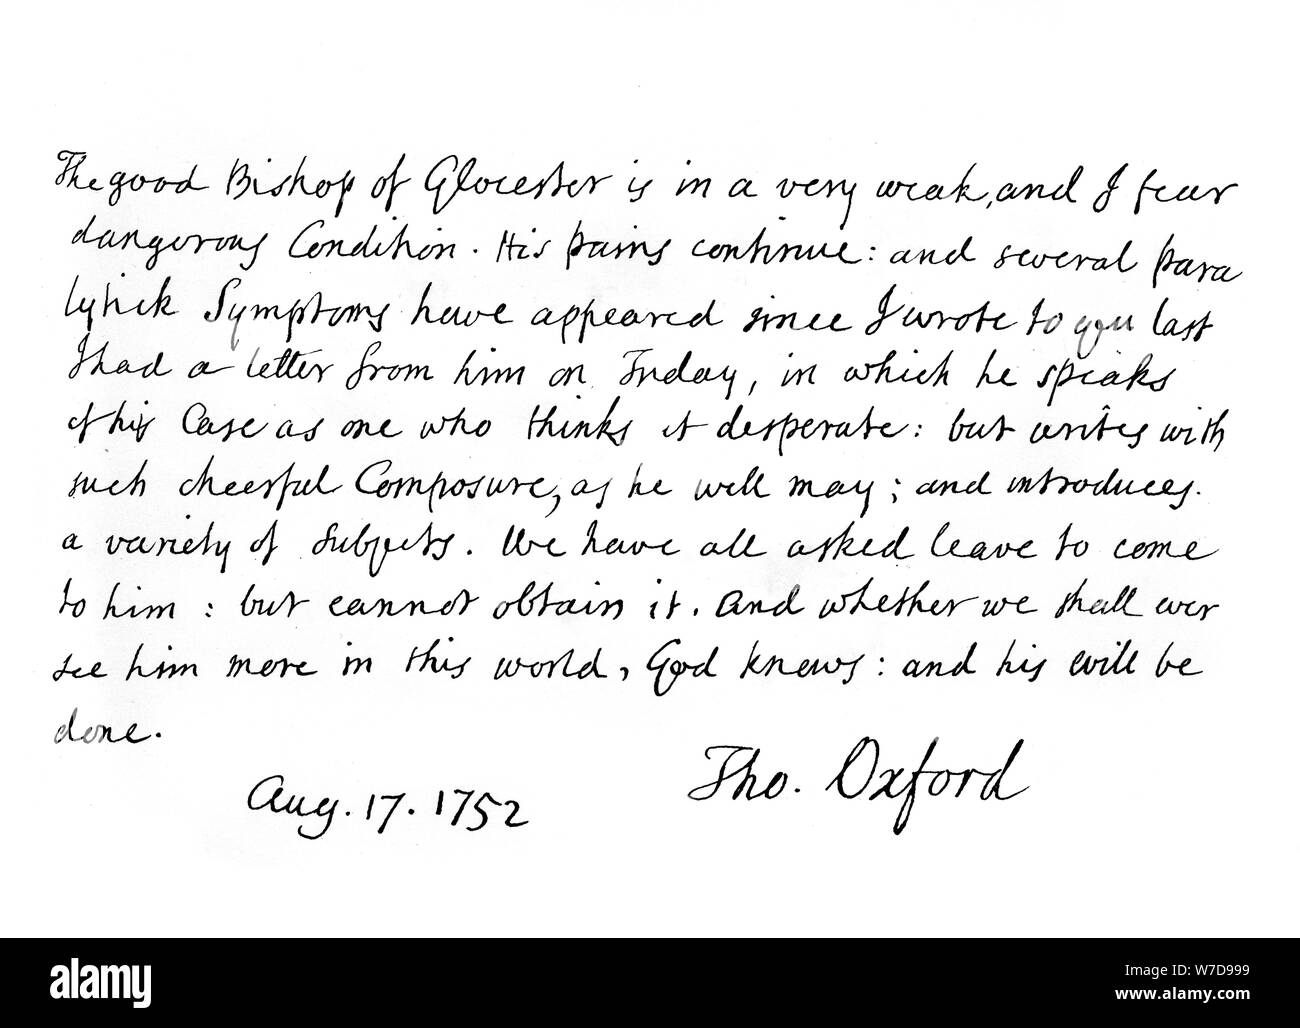 The good Bishop of Glocester is in a very weak, and I fear
dangerous Condition. His pains continue: and several para
lytick Symptoms have appeared since I wrote to you last
I had a letter from him on Friday, in which he speaks
of his Case as one who thinks it desperate: but writes with
such cheerful Composure, as he well may; and introduces.
a variety of Subjects. We have all asked leave to come
to him: but cannot obtain it. And whether we shall ever
see him more in this world, God knows: and his will be
done.
Tho. Oxford
Aug. 17. 1752
a
alamy
Image ID: W7D999
www.alamy.com